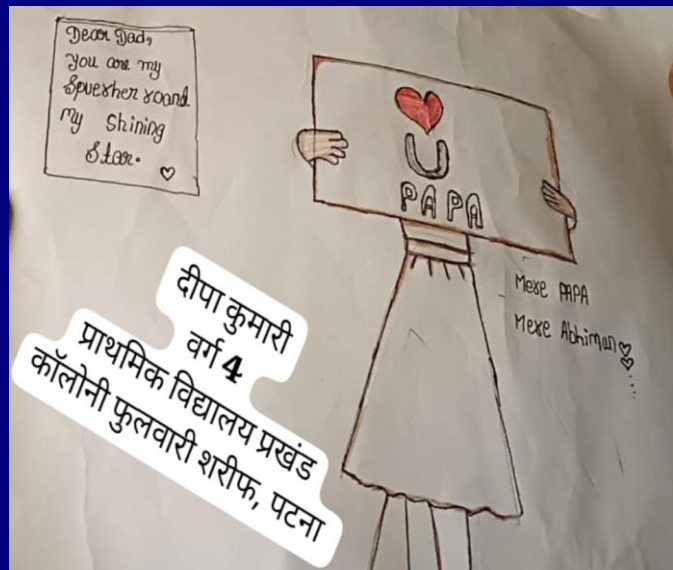 Dear Dad,
you are my
Spuerher roand
my Shining
Star.
U
PAPA
Mere PAPA
Mere Abhiman
दीपा कुमारी
वर्ग 4
प्राथमिक विद्यालय प्रखंड
कॉलोनी फुलवारी शरीफ, पटना